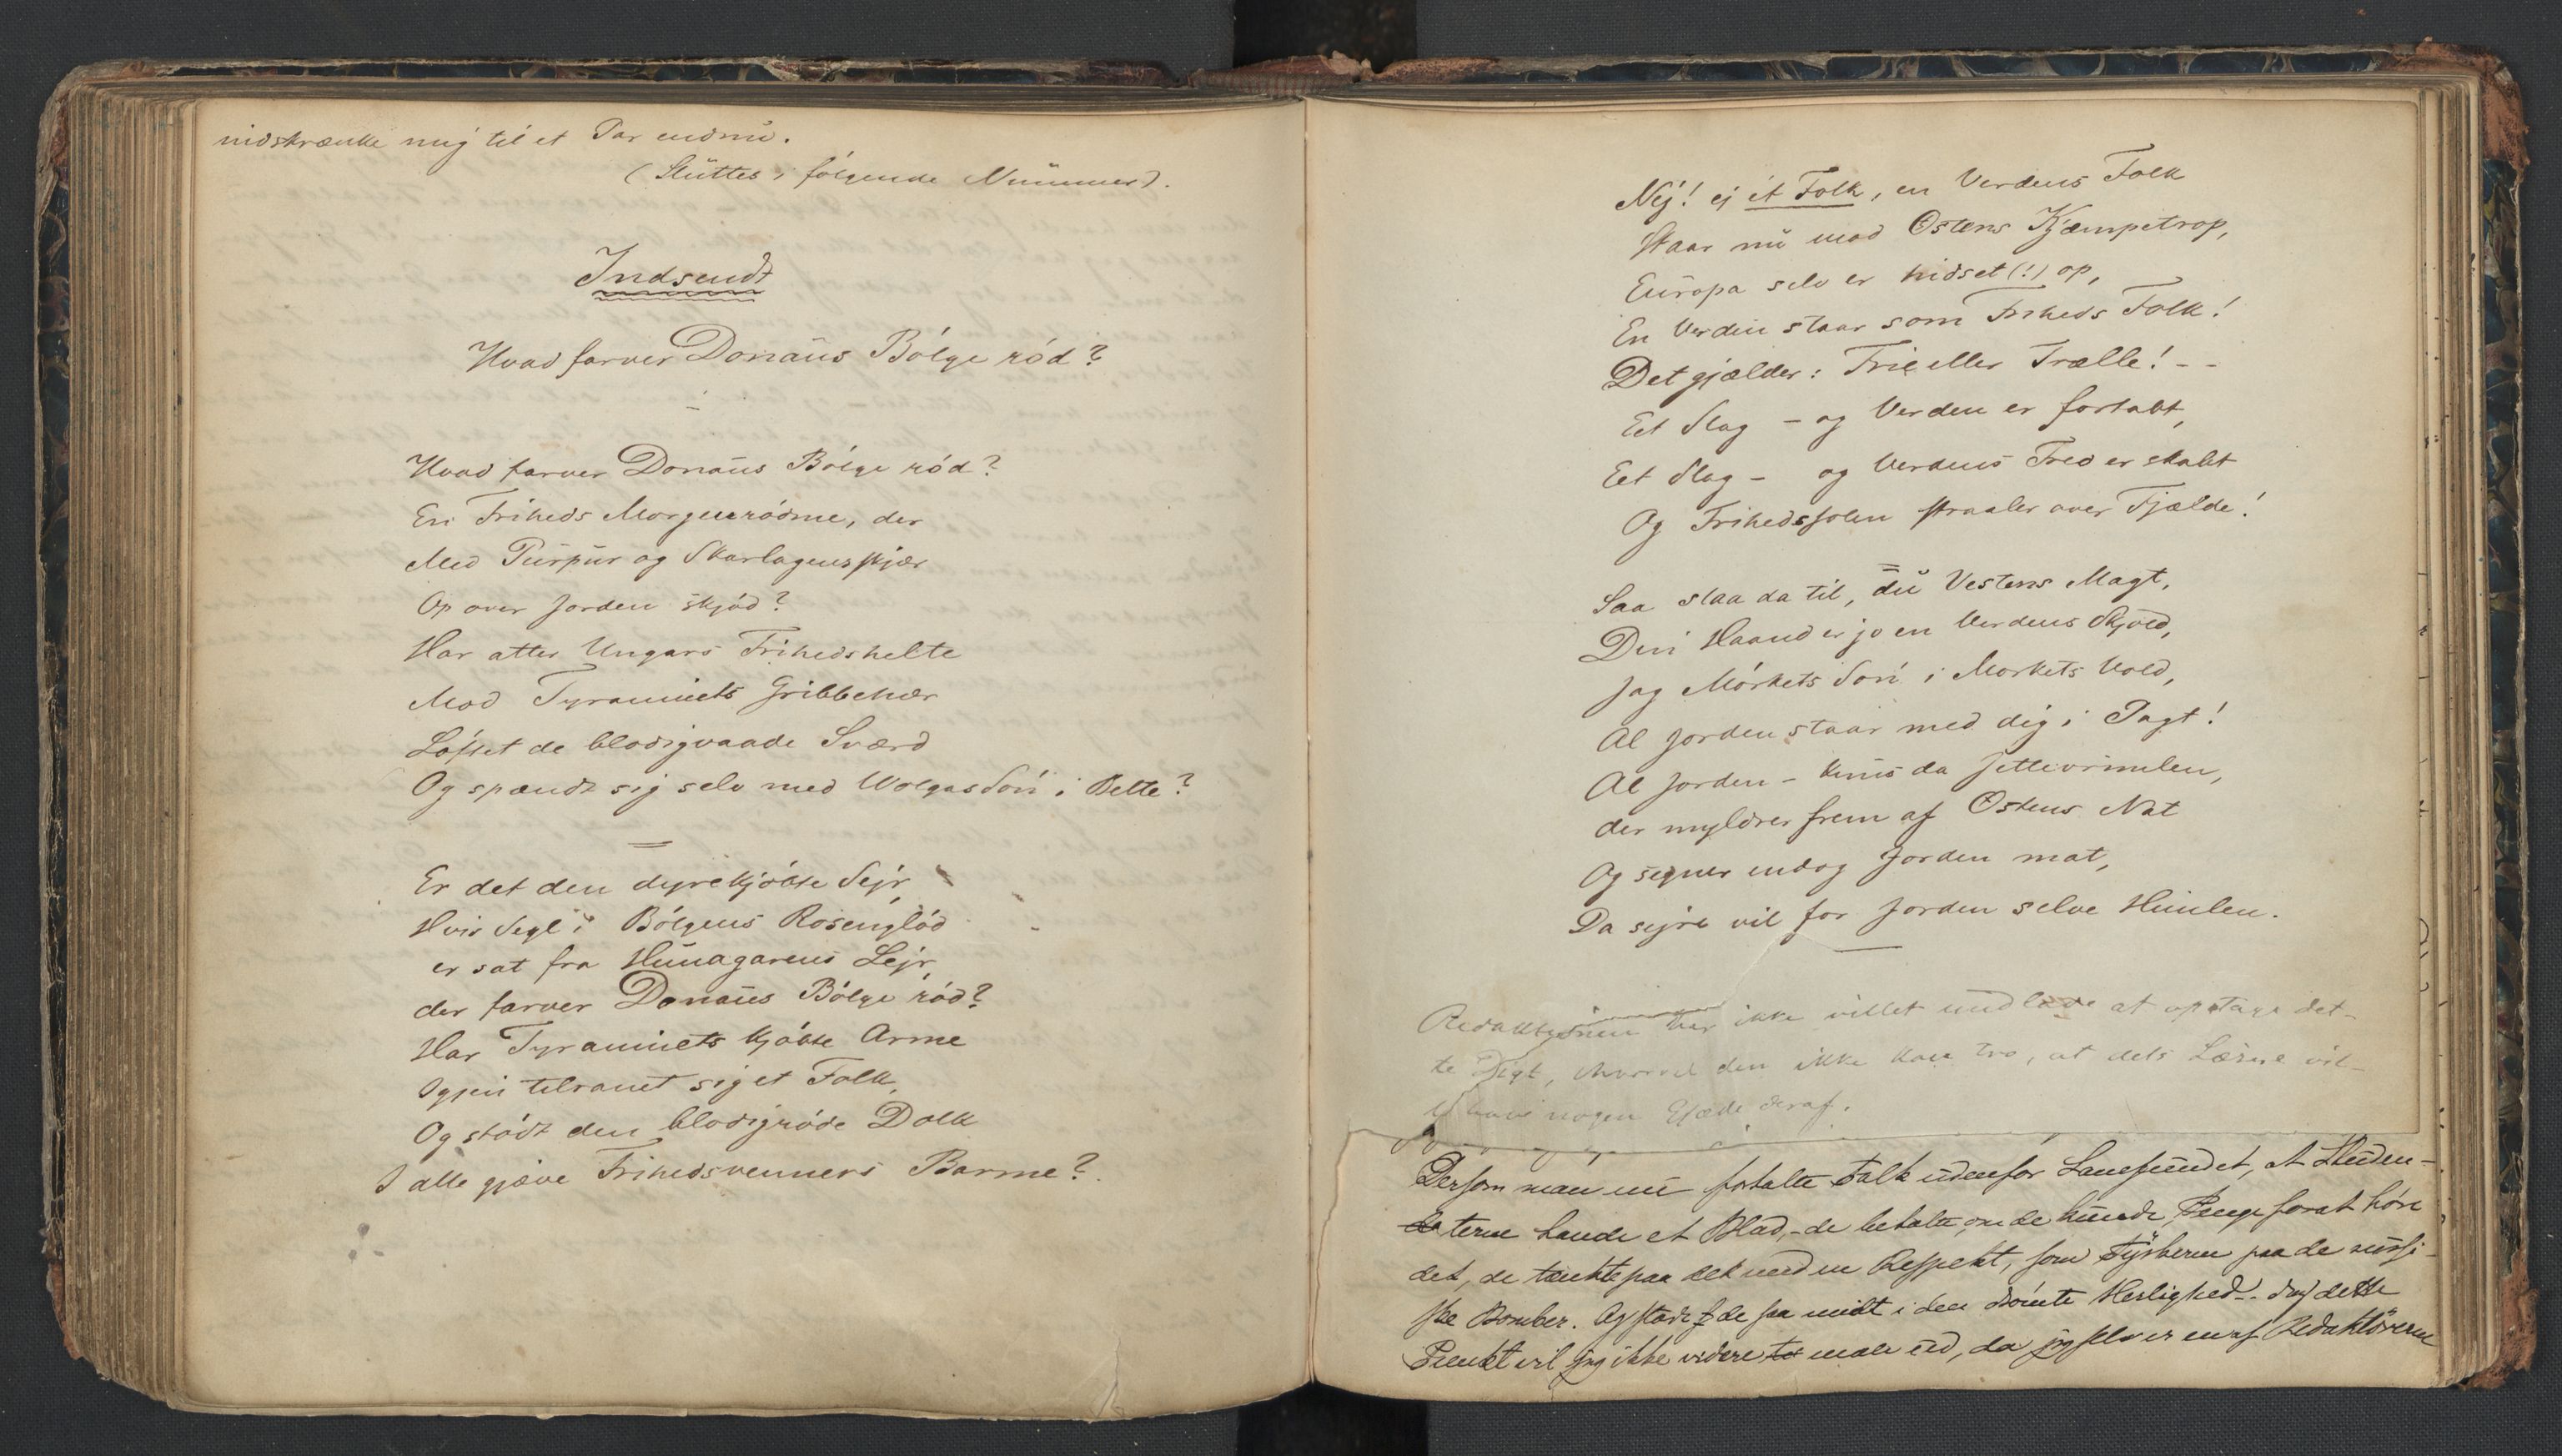 indskrænke mig til et Par endnu.
(Sluttes i følgende Nummer).
Indsendt
Hvad farver Donaus Bólge ród?
Hvad farver Donaus Bólge ród?
En Friheds Morgenródme, der
Med Purpur og Skarlagensskjær
Op over Jorden skjód?
Har atter Ungars Frihedshelte
Mod Tyranniets Gribbehær
Lóftet de blodigvaade Sværd
Og spændt sig selv med Wolgas Són i Belte?
Er det den dyrekjóbte Sejr,
Hvis Segl i Bólgens Rosenglód
er sat fra Hunagarens Lejr,
der farver Donaus Bólge ród?
Har Tyranniets kjóbte Arme
Igjen tilranet sig et Folk,
Og stódt den blodigróde Dolk
I alle gjæve Frihedsvenners Barme?
Nej! ej ét Folk, en Verdens Folk
Staar nu mod Ostens Kjæmpetrop,
Europa selv er hidset (!) op,
En Verden staar som Friheds Tolk!
Det gjælder: Frie eller Trælle! - -
Eet Slag - og Verden er fortabt,
Eet Slag - og Verdens Fred er skabt
Og Frihedssolen straaler over Fjælde!
Saa slaa da til, du Vestens Magt,
Din Haand er jo en Verdens Skjold,
Jag Mórkets Són i Mórkets Vold,
Al Jorden staar med dig i Pagt!
Al Jorden - knus da Jettevrimlen,
der myldrer frem af Ostens Nat
Og segner endog Jorden mat,
Da sejre vil for Jorden selve Himlen.
Redaktionen har ikke villet undlade at optage det-
te Digt, hvorvel den ikke kan tro, at dets Læsere vil-
le have nogen Glæde deraf.
Dersom man nu fortalte Folk udenfor Samfundet, at Studen-
terne havde et Blad, - de betalte, om de kunde, Penge forat hóre
det, de tænkte paa det med en Respekt, som Tyskerne paa de russi-
ske Bomber. Og stode de saa midt i den drómte Herlighed -. Dog dette
Punkt vil jeg ikke videre male ud, da jeg selv er en af Redaktórerne